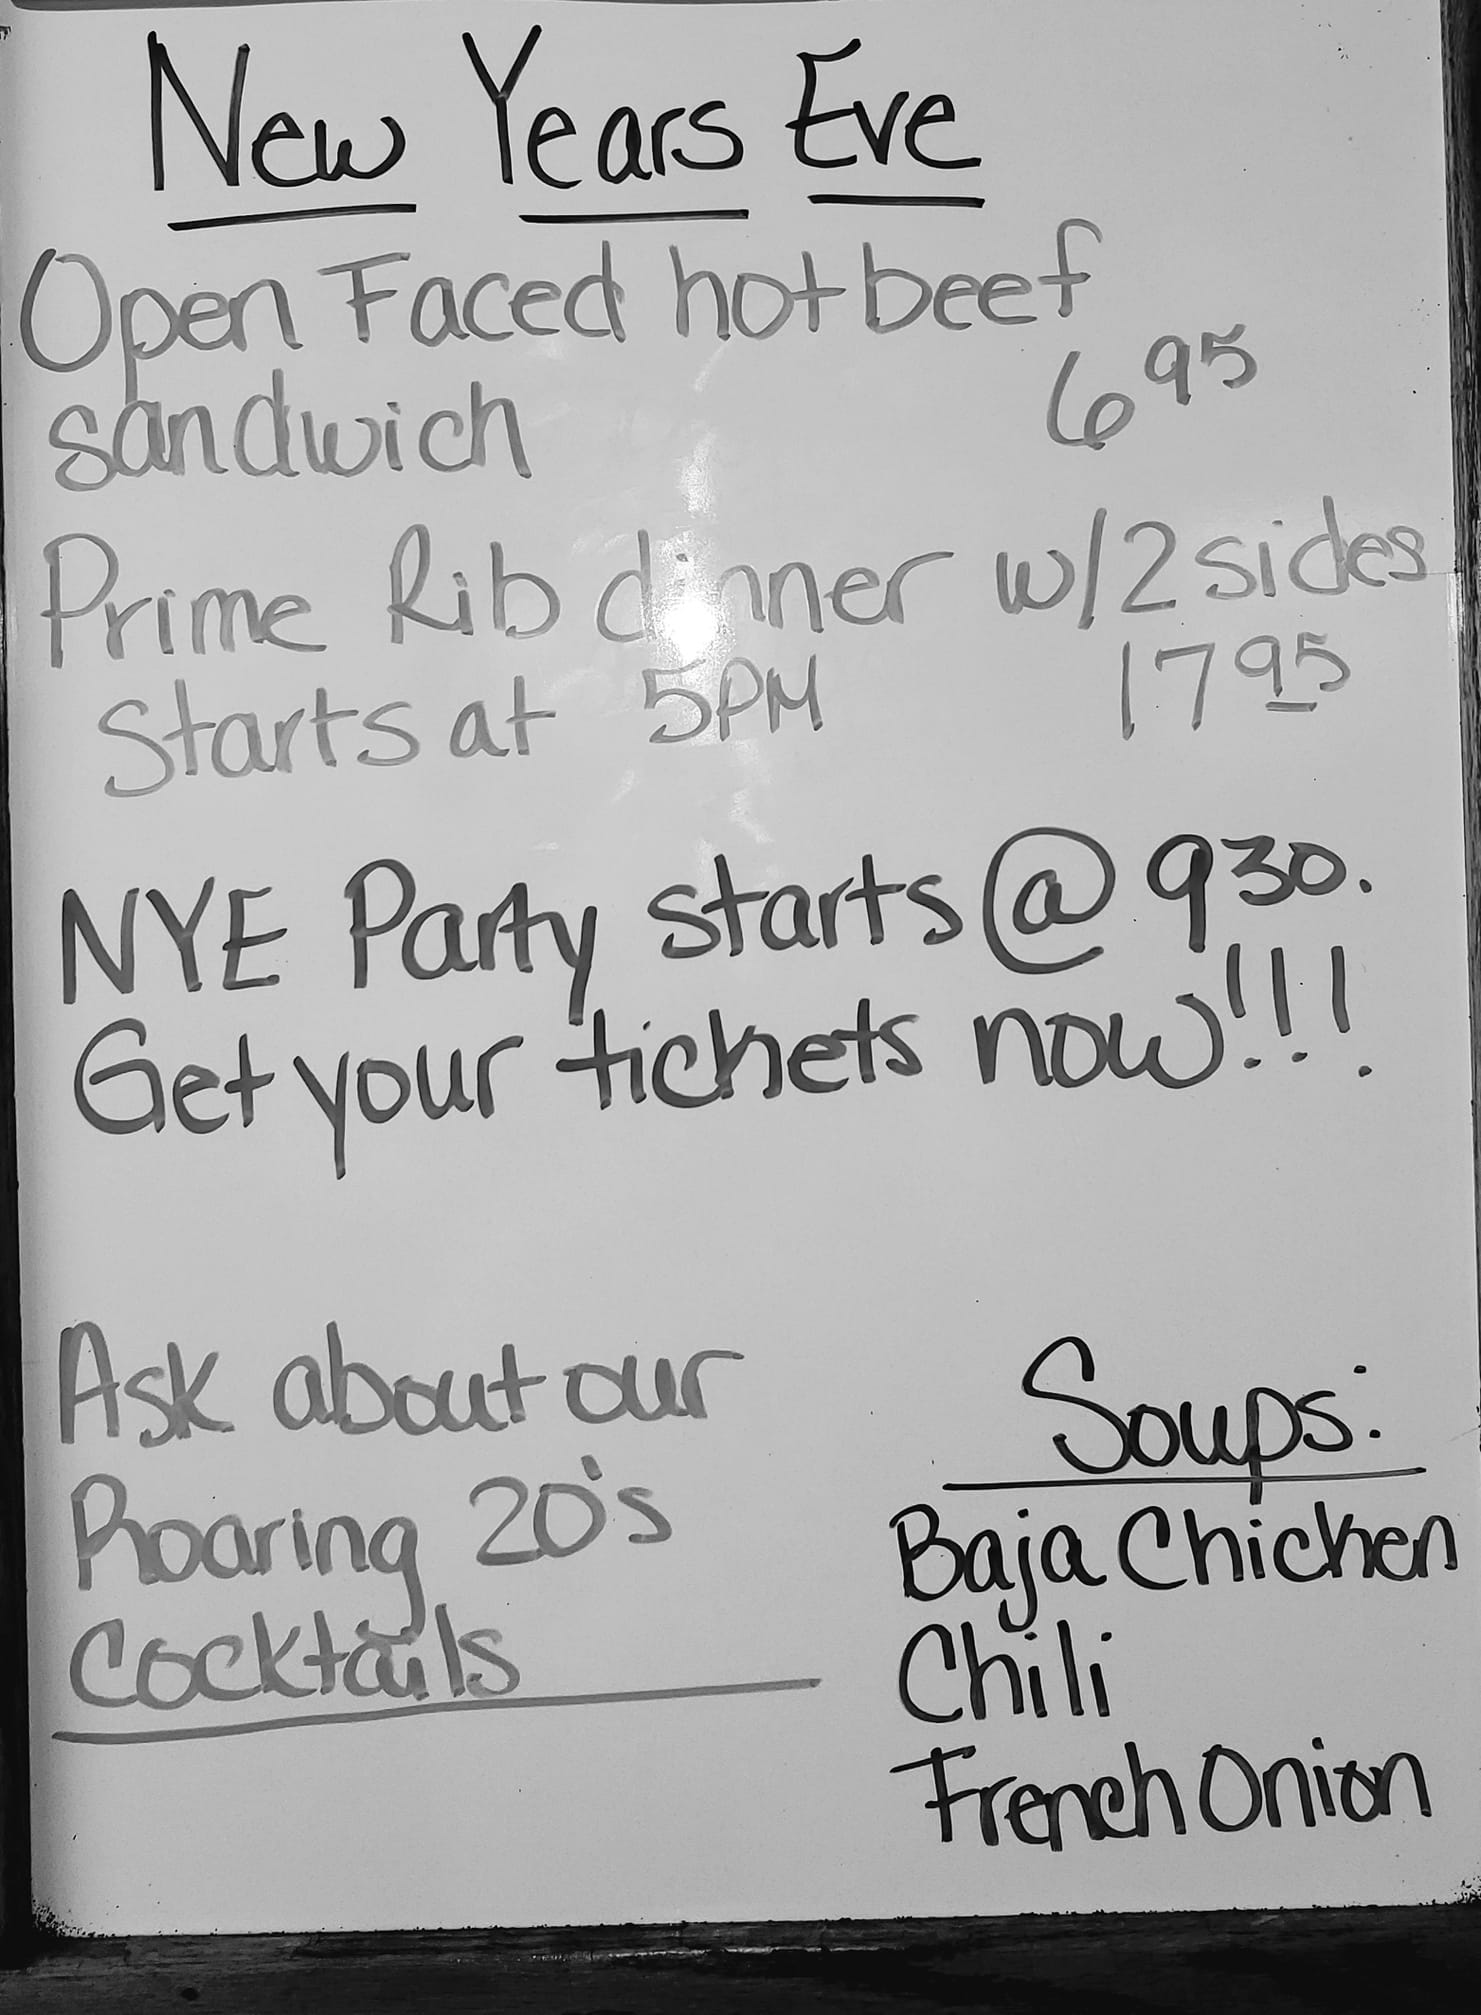 New Years Eve
Open Faced hot beef
sandwich 6 95
Prime Rib dinner w/2 sides
Starts at 5PM 17 95
NYE Party starts @ 9 30.
Get your tickets now!!!
Ask about our
Roaring 20's
Cocktails
Soups:
Baja Chicken
Chili
French Onion